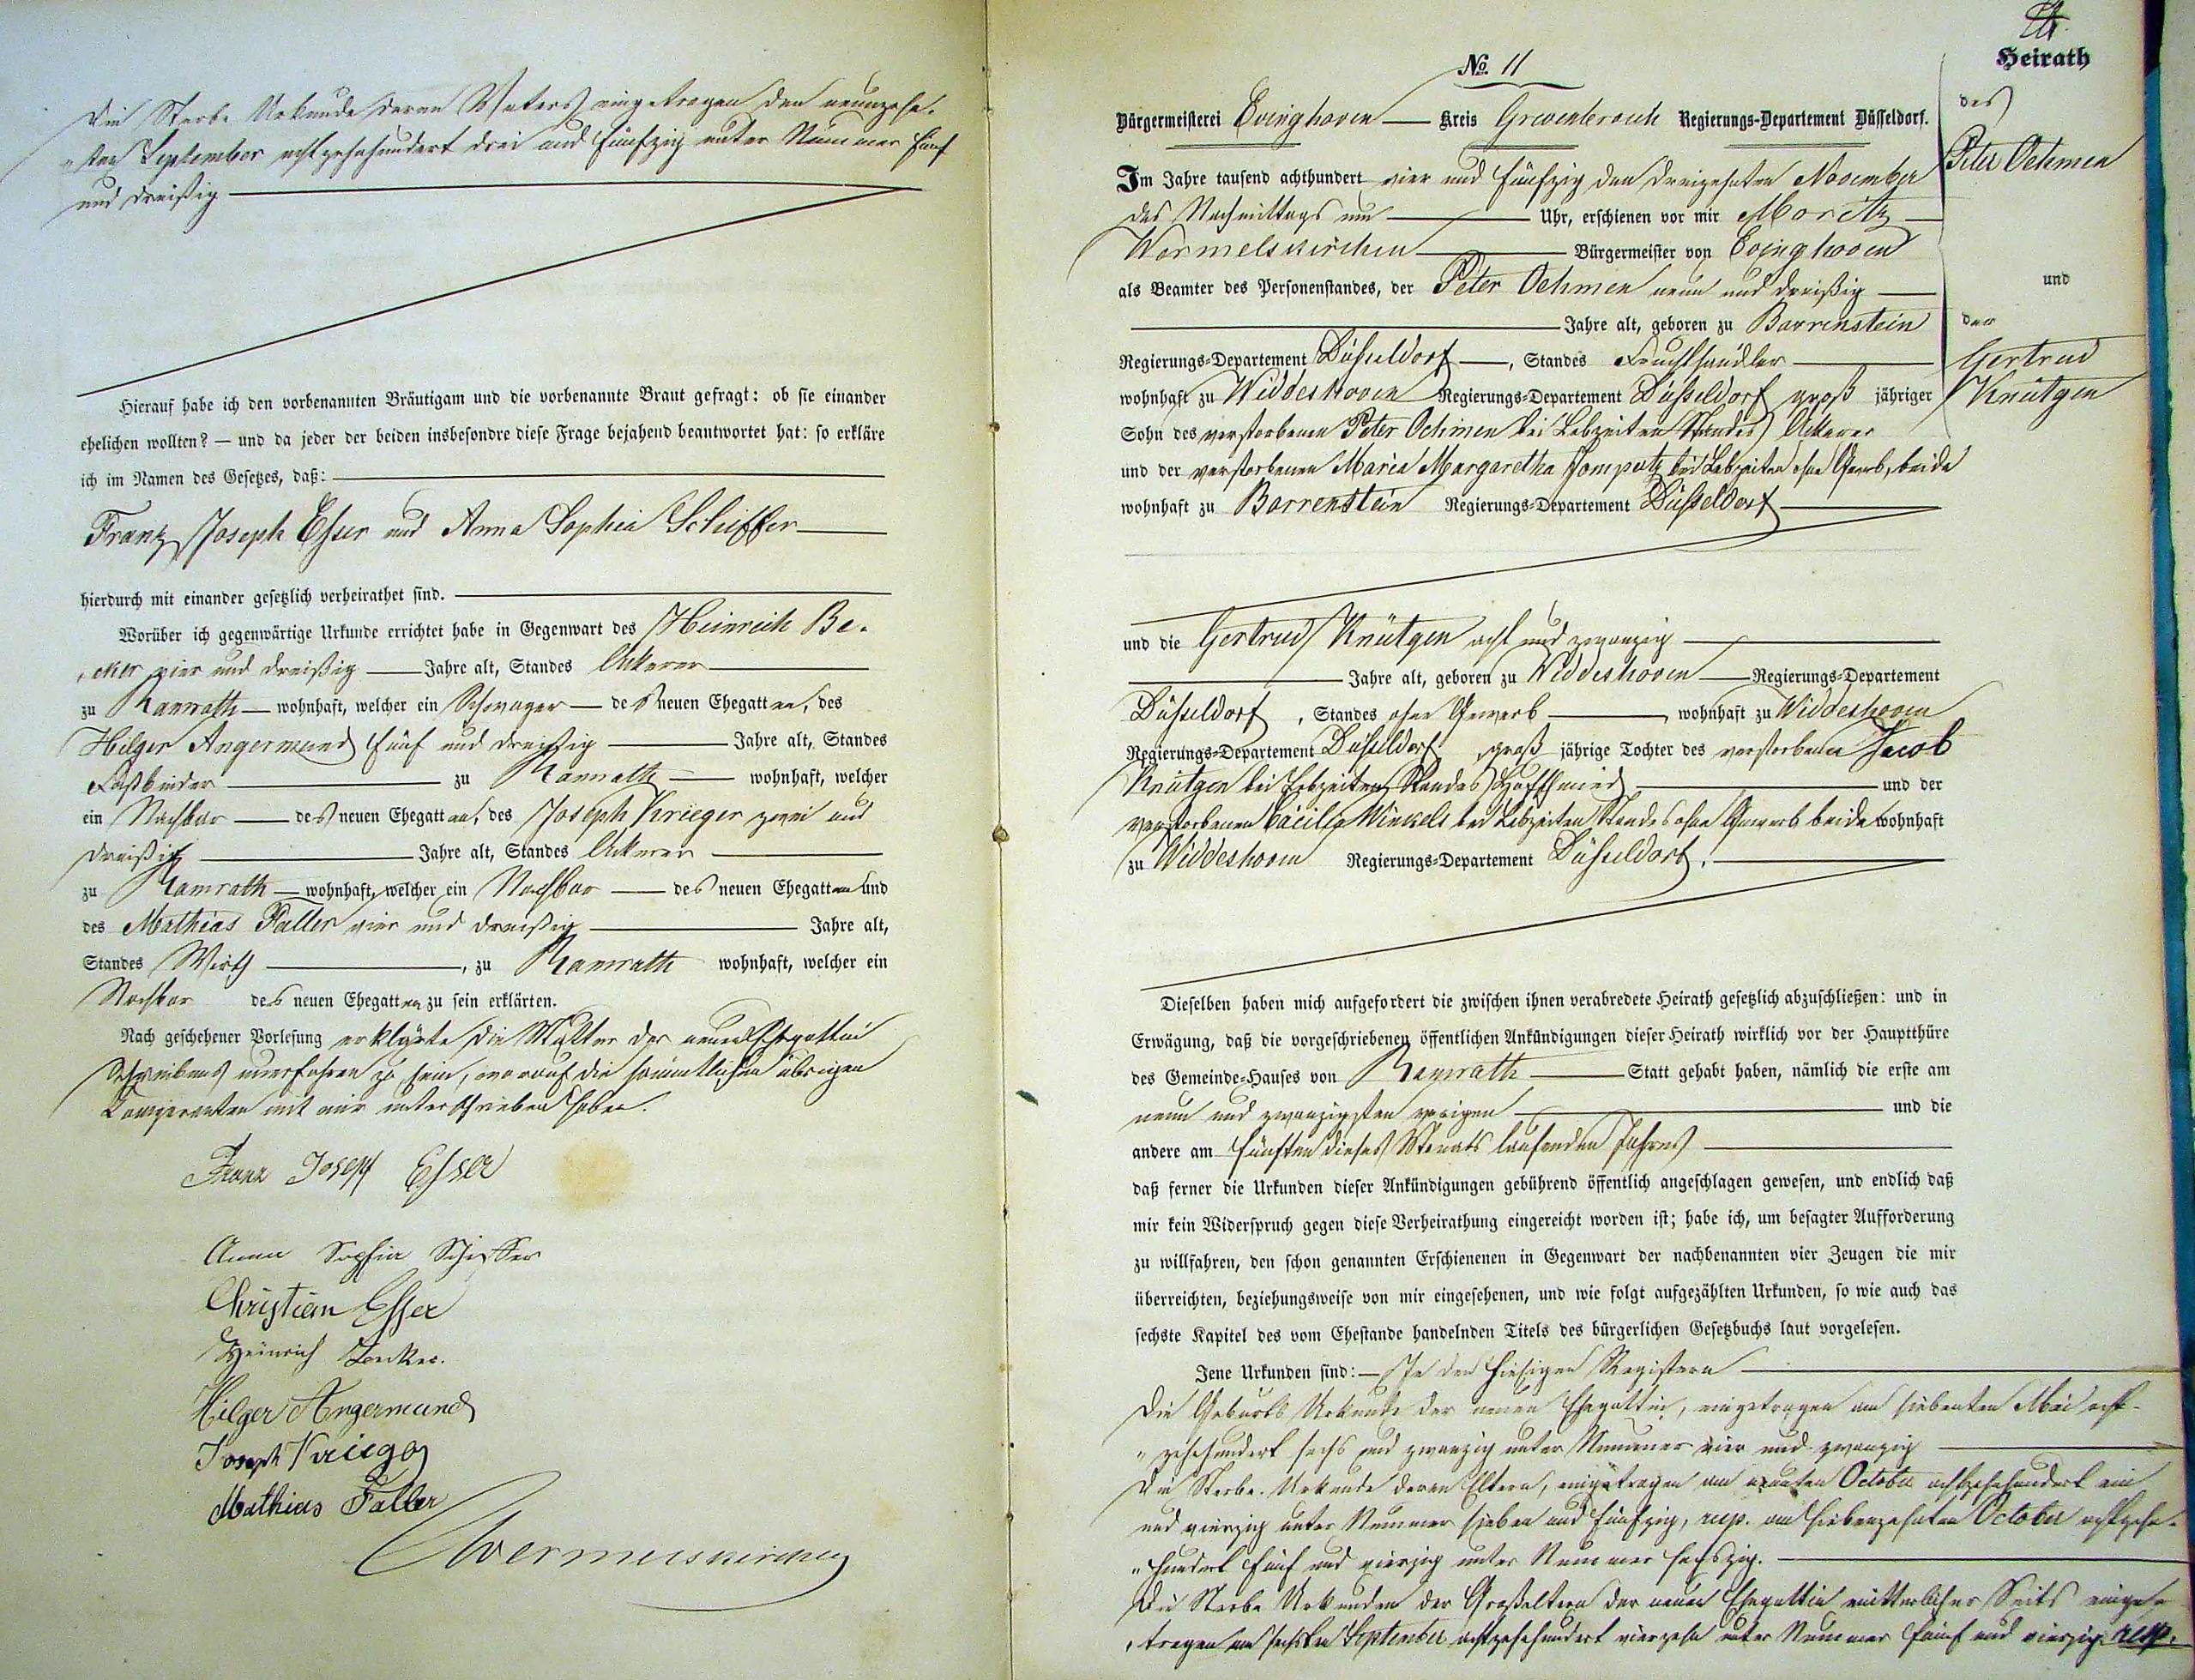 Die Sterbe Urkunde deren Vaters eingetragen den neunzehn-
"ten September achtzehnhundert drei und fünfzig unter Nummer fünf
und dreißig
Hierauf habe ich den vorbenannten Bräutigam und die vorbenannte Braut gefragt: ob sie einander
ehelichen wollten? — und da jeder der beiden insbesondre diese Frage bejahend beantwortet hat: so erkläre
ich im Namen des Gesetzes, daß:
Franz Joseph Esser und Anna Sophia Schiffer
hierdurch mit einander gesetzlich verheirathet sind.
Worüber ich gegenwärtige Urkunde errichtet habe in Gegenwart des Heinrich Be-
"cker vier und dreißig Jahre alt, Standes Ackerer
zu Ramrath wohnhaft, welcher ein Schwager des neuen Ehegatten, des
Hilger Angermund fünf und dreißig Jahre alt, Standes
Faßbinder zu Ramrath wohnhaft, welcher
ein Nachbar des neuen Ehegatten, des Joseph Krieger zwei und
dreißig Jahre alt, Standes Ackerer
zu Ramrath wohnhaft, welcher ein Nachbar des neuen Ehegatten und
des Mathias Faller vier und dreißig Jahre alt,
Standes Wirth, zu Ramrath wohnhaft, welcher ein
Nachbar des neuen Ehegatten zu sein erklärten.
Nach geschehener Vorlesung erklärte die Mutter der neuen Ehegattin
Schreibens unerfahren zu sein, worauf die sämmtlichen übrigen
Comparenten mit mir unterschrieben haben.
Franz Josep Esser
Anna Sophia Schiffer
Christian Esser
Heinrich Becker.
Hilger Angermund
Joseph Krieger
Mathias Faller
Wermelskirchen
No. 11
Bürgermeisterei Evinghoven Kreis Grevenbroich Regierungs-Departement Düsseldorf.
Im Jahre tausend achthundert vier und fünfzig den dreizehnten November
des Nachmittags um Uhr, erschienen vor mir Moritz
Wermelskirchen Bürgermeister von Evinghoven
als Beamter des Personenstandes, der Peter Oehmen neun und dreißig
Jahre alt, geboren zu Barrenstein
Regierungs-Departement Düsseldorf, Standes Fruchthändler
wohnhaft zu Widdeshoven Regierungs-Departement Düsseldorf groß jähriger
Sohn des verstorbenen Peter Oehmen bei Lebzeiten Standes Ackerer
und der verstorbenen Maria Margaretha bei Lebzeiten ohne Gewerb, beide
wohnhaft zu Barrenstein Regierungs-Departement Düsseldorf
und die Gertrud Knütgen acht und zwanzig
Jahre alt, geboren zu Widdeshoven Regierungs-Departement
Düsseldorf, Standes ohne Gewerb, wohnhaft zu Widdeshoven
Regierungs-Departement Düsseldorf, groß jährige Tochter des verstorbenen Jacob
Knütgen bei Lebzeiten Standes Hufschmied und der
verstorbenen Cäcilia Winkels bei Lebzeiten Standes ohne Gewerb beide wohnhaft
zu Widdeshoven Regierungs-Departement Düsseldorf.
Dieselben haben mich aufgefordert die zwischen ihnen verabredete Heirath gesetzlich abzuschließen: und in
Erwägung, daß die vorgeschriebenen öffentlichen Ankündigungen dieser Heirath wirklich vor der Hauptthüre
des Gemeinde-Hauses von Ramrath Statt gehabt haben, nämlich die erste am
neun und zwanzigsten vorigen und die
andere am fünften dieses Monats laufenden Jahres
daß ferner die Urkunden dieser Ankündigungen gebührend öffentlich angeschlagen gewesen, und endlich daß
mir kein Widerspruch gegen diese Verheirathung eingereicht worden ist; habe ich, um besagter Aufforderung
zu willfahren, den schon genannten Erschienenen in Gegenwart der nachbenannten vier Zeugen die mir
überreichten, beziehungsweise von mir eingesehenen, und wie folgt aufgezählten Urkunden, so wie auch das
sechste Kapitel des vom Ehestande handelnden Titels des bürgerlichen Gesetzbuchs laut vorgelesen.
Jene Urkunden sind: — In den hiesigen Registern
Die Geburts Urkunde der neuen Ehegattin, eingetragen am siebenten Mai acht-
"zehnhundert sechs und zwanzig unter Nummer vier und zwanzig
Die Sterbe-Urkunde deren Eltern, eingetragen am neunten October achtzehnhundert ein
und vierzig unter Nummer sieben und fünfzig, resp. am siebenzehnten October achtzehn-
"hundert fünf und vierzig unter Nummer sechszig.
Die Sterbe Urkunden der Großeltern der neuen Ehegattin mütterlicher Seits einge-
"tragen am sechsten September achtzehnhundert vierzehn unter Nummer fünf und vierzig resp.
Heirath
des
Peter Oehmen
und
der
Gertrud
Knütgen